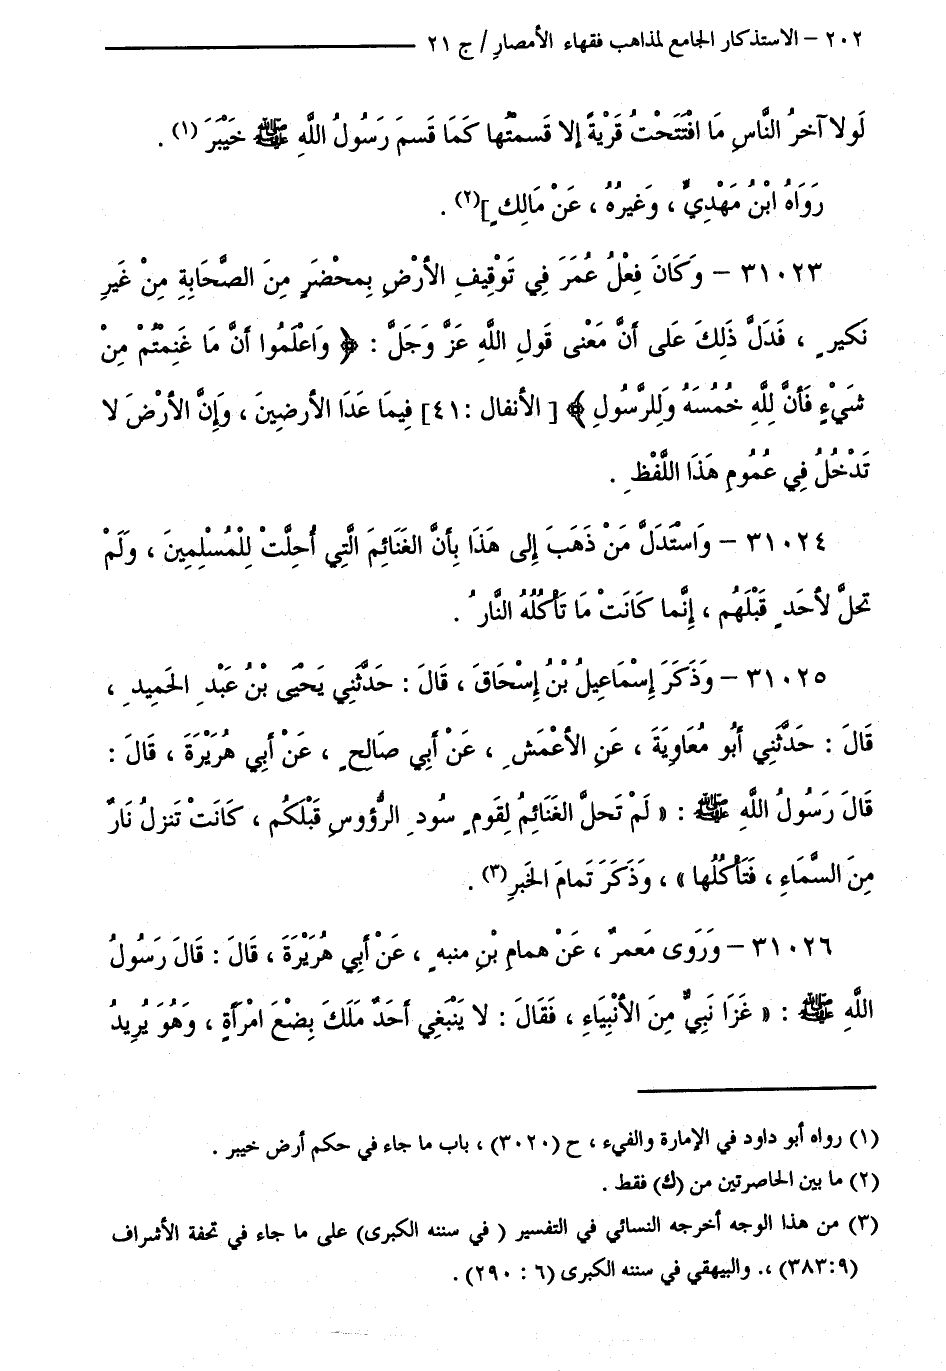 ٢٠٢ – الاستذكار الجامع لمذاهب فقهاء الأمصار / ج ٢١
لَولا آخرُ النَّاسِ مَا افْتَتَحْتُ قَرْيَةً إلا قَسمتُها كَمَا قَسمَ رَسُولُ اللَّهِ ﷺ خَيْبَرَ (١) .
رَوَاهُ ابْنُ مَهْدِيٍّ ، وَغيرُهُ ، عَنْ مَالِكٍ ](٢) .
٣١٠٢٣ – وَكَانَ فِعْلُ عُمَرَ فِي تَوْقِيفِ الأَرْضِ بِمحْضَرٍ مِنَ الصَّحَابِةِ مِنْ غَيرِ
نَكيرٍ ، فَدَلَّ ذَلِكَ عَلى أنَّ مَعْنى قَولِ اللَّهِ عَزَّ وَجَلَّ : ﴿ وَاعْلَمُوا أنَّ مَا غَنِمتُمْ مِنْ
شَيْءٍ فَأنَّ لِلَّهِ خُمُسَهُ وَلِلرَّسُولِ ﴾ [ الأنفال :٤١] فِيمَا عَدَا الأرضِينَ ، وَإِنَّ الأَرْضَ لا
تَدْخُلُ فِي عُمُومِ هَذَا اللَّفْظِ .
٣١٠٢٤ – وَاسْتَدَلَّ مَنْ ذَهَبَ إِلى هَذَا بِأنَّ الغَنَائِمَ الَّتِي أُحلَّتْ لِلْمُسْلِمِينَ ، وَلَمْ
تحلَّ لأحَدٍ قَبْلَهُم ، إِنَّما كَانَتْ مَا تَأْكُلُهُ النَّارُ .
٣١٠٢٥ – وَذَكَرَ إِسْمَاعِيلُ بْنُ إِسْحَاقَ ، قَالَ : حَدَّثَنِي يَحْيَى بْنُ عَبْدِ الحَميدِ ،
قَالَ : حَدَّثَنِي أَبُو مُعَاوِيَةَ ، عَنِ الأعْمَشِ ، عَنْ أَبِي صَالِحٍ ، عَنْ أَبِي هُرَيْرَةَ ، قَالَ :
قَالَ رَسُولُ اللَّهِ ﷺ : « لَمْ تَحلَّ الغَنَائِمُ لِقَومٍ سُودِ الرُّؤوسِ قَبْلَكُم ، كَانَتْ تَنزلُ نَارٌ
مِنَ السَّمَاءِ ، فَتَأْكُلُها » ، وَذَكَرَ تَمامَ الخَبرِ(٣) .
٣١٠٢٦ – وَرَوَى مَعمرٌ ، عَنْ همامِ بْنِ منبهٍ ، عَنْ أَبِي هُرَيْرَةَ ، قَالَ : قَالَ رَسُولُ
اللَّهِ ﷺ : « غَزَا نَبِيٌّ مِنَ الأَنْبِيَاءِ ، فَقَالَ : لا يَنْبَغِي أحَدٌ مَلَكَ بِضْعَ امْرَأَةٍ ، وَهُوَ يُرِيدُ
(١) رواه أبو داود في الإمارة والفيء ، ح (٣٠٢٠) ، باب ما جاء في حكم أرض خيبر .
(٢) ما بين الحاصرتين من (ك) فقط .
(٣) من هذا الوجه أخرجه النسائي في التفسير ( في سننه الكبرى) على ما جاء في تحفة الأشراف
(٣٨٣:٩) ،. والبيهقي في سننه الكبرى (٦ : ٢٩٠) .